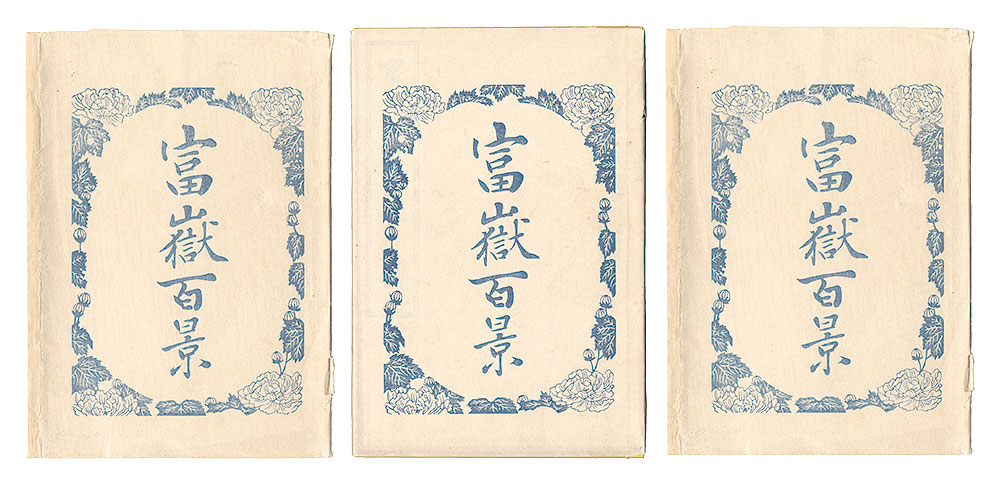 富嶽百景
富嶽百景
富嶽百景